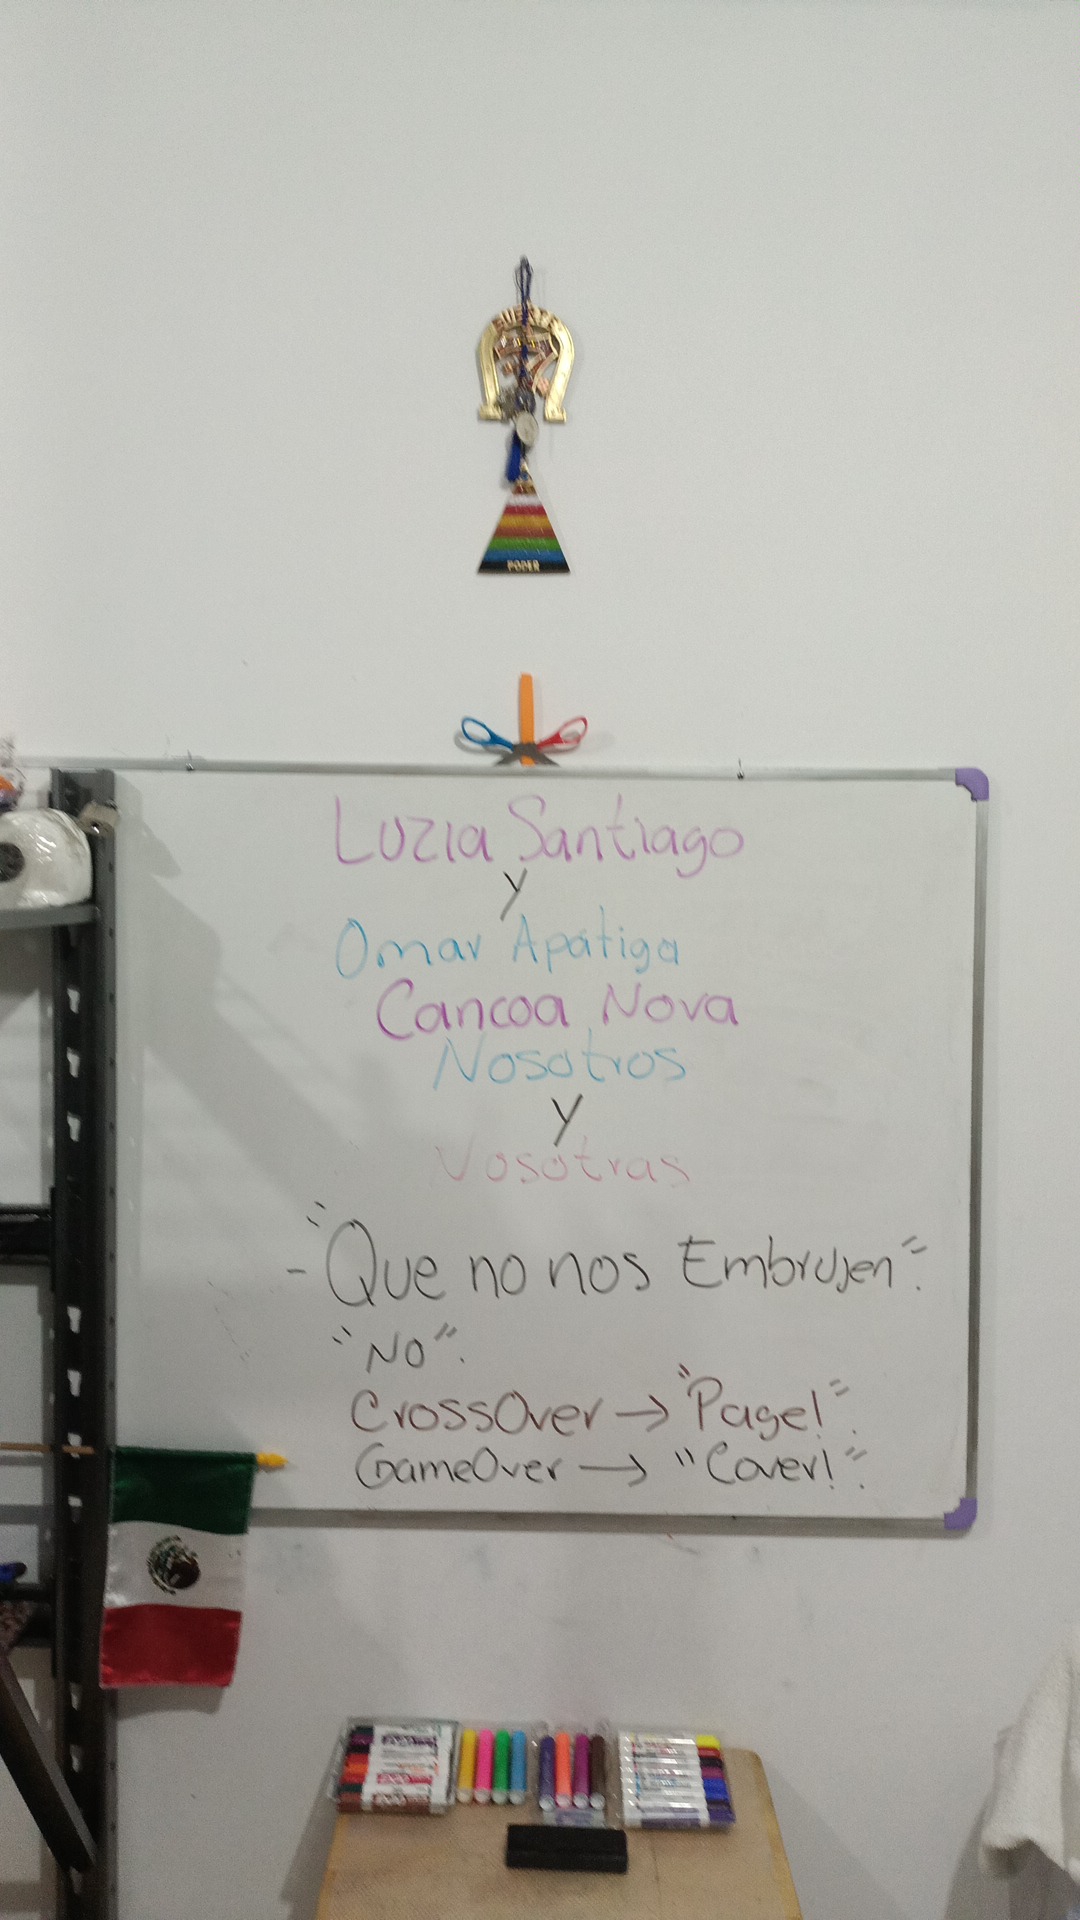 SUERTE
PODER
Luzia Santiago
y
Omar Apatiga
Cancoa Nova
Nosotros
y
Vosotras
- "Que no nos Embrujen".
"NO".
CrossOver → "Page!".
GameOver → "Cover!".